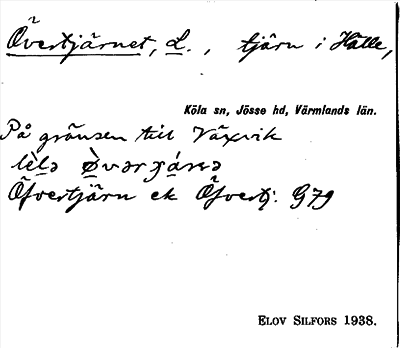 Övertjärnet, L., tjärn i Hålle,
Köla sn, Jösse hd, Värmlands län.
På gränsen till Växvik
Öfvertjärn ek Öfvertj: G79
ELOV SILFORS 1938.